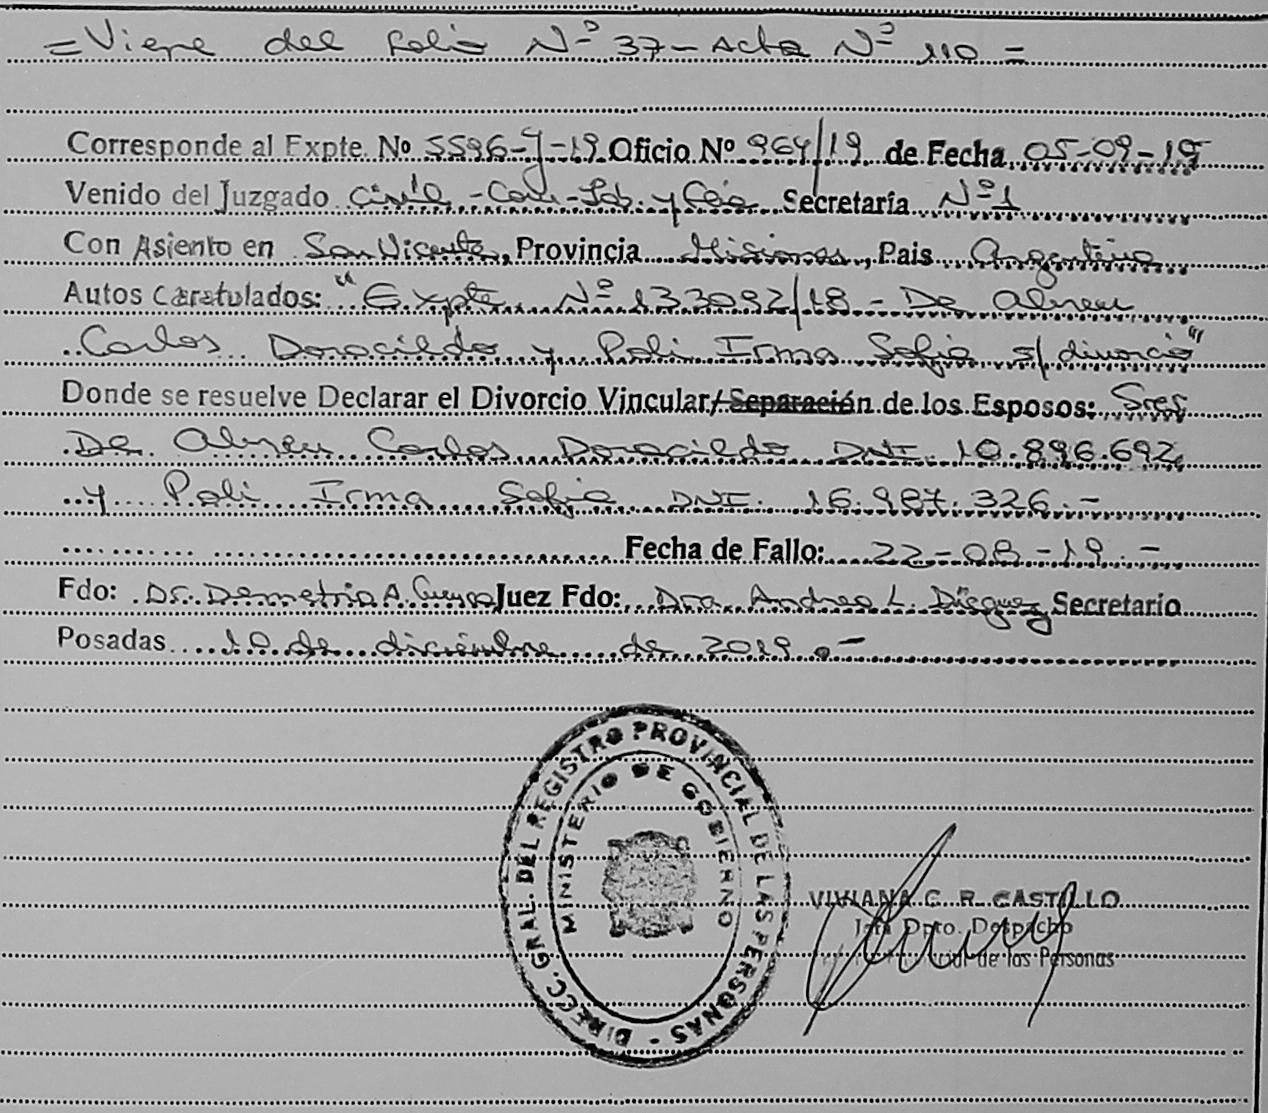 =Viene del folio Nº 37-Acta Nº 110=
Corresponde al Expte. Nº 5596-J-19 Oficio Nº 964/19 de Fecha 05-09-19
Venido del Juzgado Civil-Com-Lab. y Flia Secretaría Nº1
Con Asiento en San Vicente, Provincia Misiones, Pais Argentina
Autos Caratulados: "Expte. Nº 133092/18 - De Abreu
Carlos Doracildo y Poli Irma Sofia s/divorcio"
Donde se resuelve Declarar el Divorcio Vincular/Separación de los Esposos: Sres
De Abreu Carlos Doracildo DNI. 10.896.692
y Poli Irma Sofia DNI. 16.987.326.-
Fecha de Fallo: 22-08-19.-
Fdo: Dr. Demetrio A. Juez Fdo: Dra. Andrea L. Secretario
Posadas 10 de diciembre de 2019.-
DIRECC. GRAL. DEL REGISTRO PROVINCIAL DE LAS PERSONAS -
MINISTERIO DE GOBIERNO
VIVIANA C. R. CASTILLO
Jefa Dpto. Despacho
de las Personas